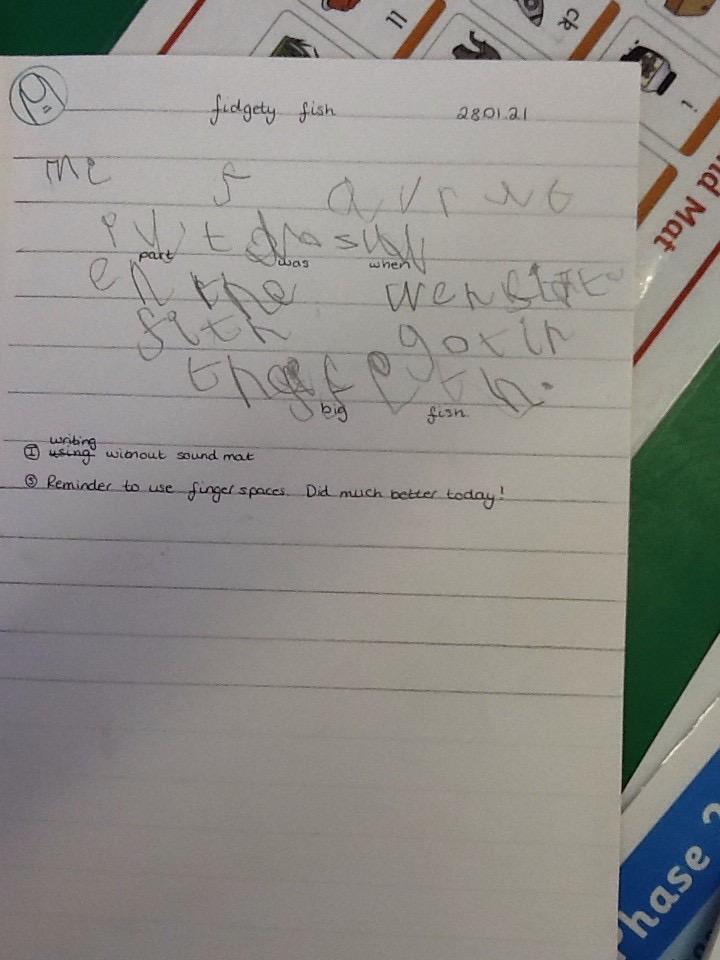 ll
ck
fidgety fish 28.01.21
me f avrut
pvt was
part was when
en the wen
fith got in
the feth.
big fish
writing
① using without sound mat
③ Reminder to use finger spaces. Did much better today!
Mat
Phase 2